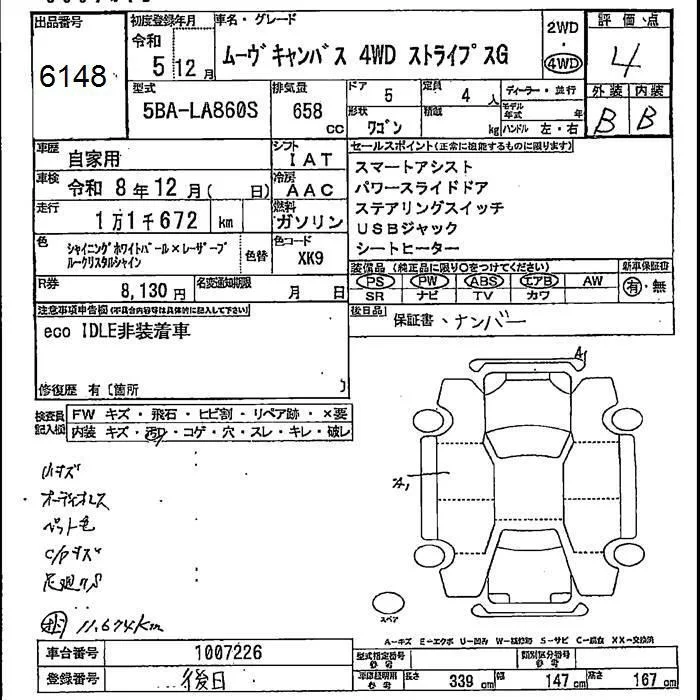 出品番号 初度登録年月 車名・グレード 2WD 評価点
6148 令和 5年 12月 ムーヴキャンバス 4WD ストライプスG ・ 4WD 4
型式 排気量 ドア 定員 ディーラー・並行 外装 内装
5BA-LA860S 658 cc 5 4人 モデル年式 年 B B
形状 積載 kg ハンドル 左・右
ワゴン
車歴 自家用 シフト IAT セールスポイント(正常に機能するものに限ります)
車検 令和 8年12月( 日) 冷房 AAC スマートアシスト
パワースライドドア
走行 1万1千672 km 燃料 ガソリン ステアリングスイッチ
USBジャック
色 シャイニングホワイトパール×レーザーブ 色替 色コード XK9 シートヒーター
ルークリスタルシャイン
装備品(純正品に限り○をつけてください) 新車保証書
R券 8,130円 名変通知期限 月 日 PS PW ABS エアB AW 有・無
SR ナビ TV カワ
注意事項申告欄(不具合内容等は具体的に記入して下さい) 後日品 保証書、ナンバー
eco IDLE非装着車
修復歴 有〔箇所 〕
検査員 FW キズ・飛石・ヒビ割・リペア跡・×要
記入欄 内装 キズ・汚れ・コゲ・穴・スレ・キレ・破レ
A1
A1
小キズ
オーディオレス
ペット毛
C/Pキズ
足廻りS
11,674km
スペア
A-キズ E-エクボ U-凹み W-補修跡 S-サビ C-腐食 XX-交換済
車台番号 1007226 型式指定番号 参考 類別区分番号 参考
登録番号 後日 車庫証明用 参考 長さ 339 cm 幅 147 cm 高さ 167 cm